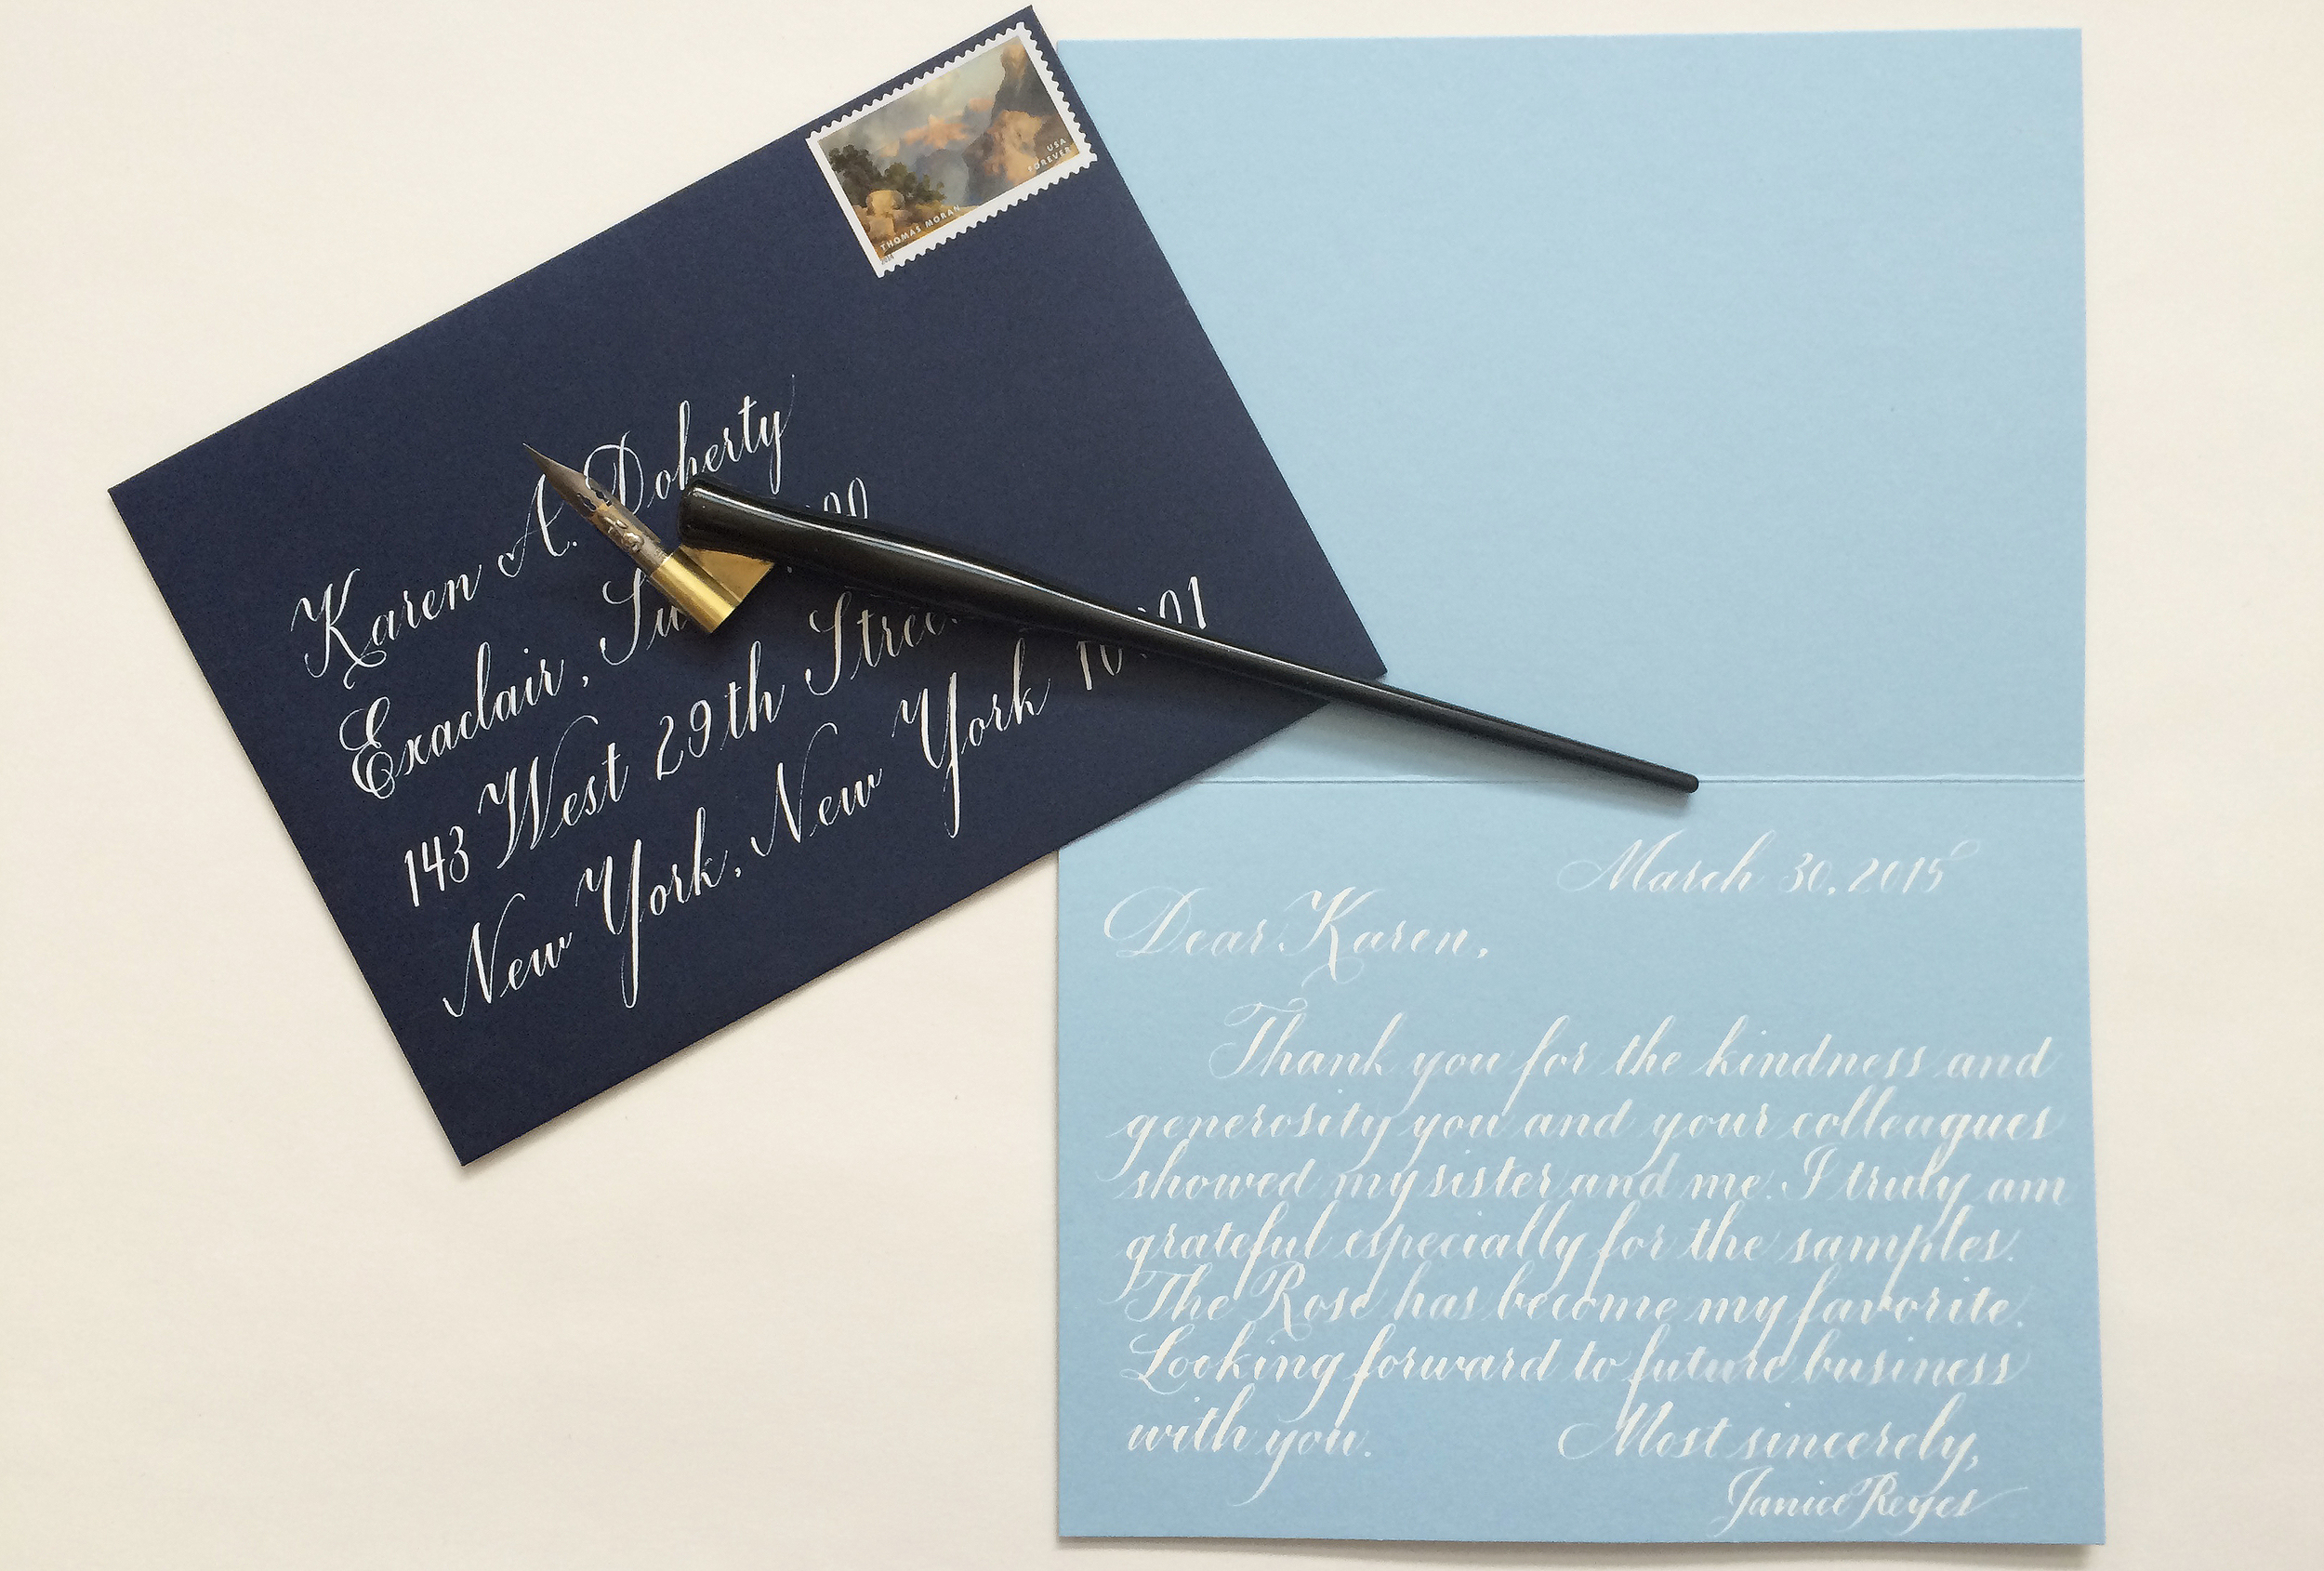 THOMAS MORAN
USA
FOREVER
2014
Karen A. Doherty
Exaclair,
143 West 29th
New York, New York
March 30, 2015
Dear Karen,
Thank you for the kindness and
generosity you and your colleagues
showed my sister and me. I truly am
grateful especially for the samples.
The Rose has become my favorite.
Looking forward to future business
with you.
Most sincerely,
Janice Reyes